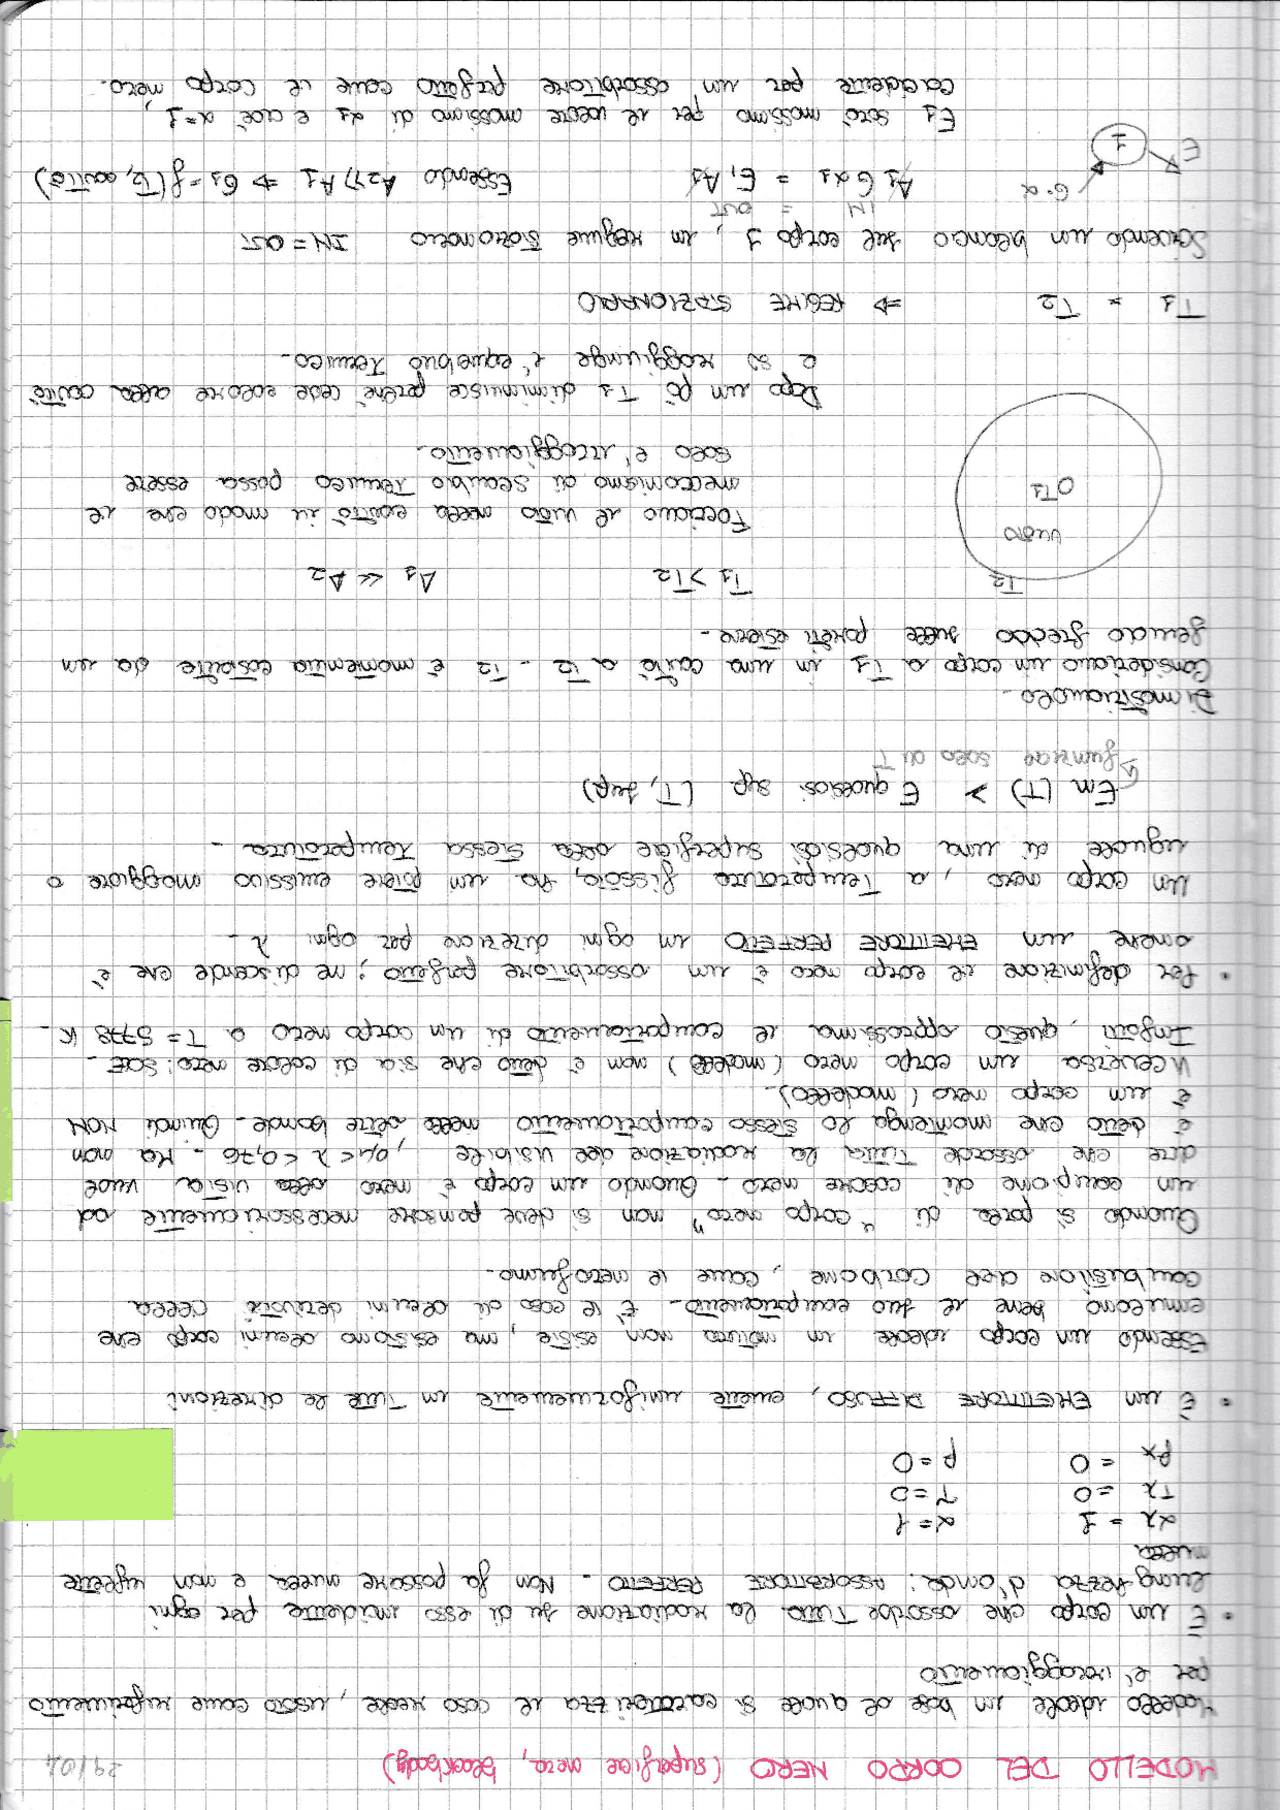 MODELLO DEL CORPO NERO (superficie nera, blackbody) 29/04
Modello ideale in base al quale si caratterizza il caso reale, usato come riferimento
per l'irraggiamento
• È un corpo che assorbe tutta la radiazione su di esso incidente per ogni
lunghezza d'onda: ASSORBITORE PERFETTO - Non fa passare nulla e non riflette
nulla
αλ = 1 α = 1
τλ = 0 τ = 0
ρλ = 0 ρ = 0
• È un EMETTITORE DIFFUSO, emette uniformemente in tutte le direzioni
Essendo un corpo ideale in natura non esiste, ma esistono alcuni corpi che
emulano bene il suo comportamento - È il caso di alcuni derivati della
combustione del carbone, come il nerofumo -
Quando si parla di "corpo nero" non si deve pensare necessariamente ad
un campione di colore nero - Quando un corpo è nero alla vista vuole
dire che assorbe tutta la radiazione del visibile, 0,4 < λ < 0,76 - Ma non
è detto che mantenga lo stesso comportamento nelle altre bande - Quindi NON
è un corpo nero (modello) -
Viceversa un corpo nero (modello) non è detto che sia di colore nero: SOLE -
Infatti, questo approssima il comportamento di un corpo nero a T = 5778 K -
• Per definizione il corpo nero è un assorbitore perfetto; ne discende che è
anche un EMETTITORE PERFETTO in ogni direzione per ogni λ -
Un corpo nero, a temperatura fissata, ha un potere emissivo maggiore o
uguale di una qualsiasi superficie alla stessa temperatura -
En (T) > E qualsiasi sup (T, sup)
↳ funzione solo di T
Dimostriamolo -
Consideriamo un corpo a T1 in una cavità a T2 - T2 è mantenuta costante da un
fluido freddo sulle pareti esterne -
T2 T1 > T2 A1 << A2
vuoto
O T1
Facciamo il vuoto nella cavità in modo che il
meccanismo di scambio termico possa essere
solo l'irraggiamento -
Dopo un pò T1 diminuisce perchè cede calore alla cavità
e si raggiunge l'equilibrio termico -
T1 = T2 ⇒ REGIME STAZIONARIO
Scrivendo un bilancio sul corpo 1, in regime stazionario IN = OUT
IN = OUT
G·α 1 E1 A1 G α1 = E1 A1 Essendo A2 >> A1 ⇒ G1 = f(T2, cavità)
E1 sarà massimo per il valore massimo di α1 e cioè α = 1,
coincidente per un assorbitore perfetto come il corpo nero -